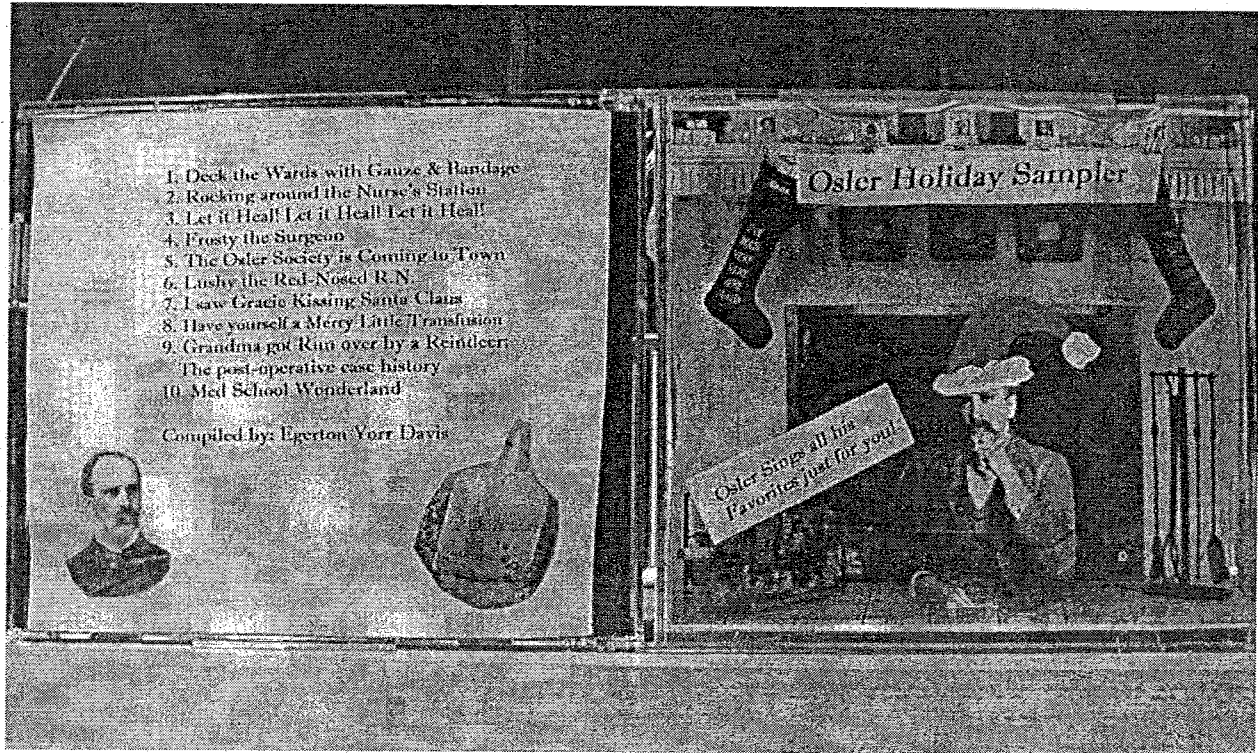 1. Deck the Wards with Gauze & Bandage
2. Rocking around the Nurse's Station
3. Let it Heal! Let it Heal! Let it Heal!
4. Frosty the Surgeon
5. The Osler Society is Coming to Town
6. Lushy the Red-Nosed R.N.
7. I saw Gracie Kissing Santa Claus
8. Have yourself a Merry Little Transfusion
9. Grandma got Run over by a Reindeer:
The post-operative case history
10. Med School Wonderland
Compiled by: Egerton Yorr Davis
Osler Holiday Sampler
Osler Sings all his
Favorites just for you!